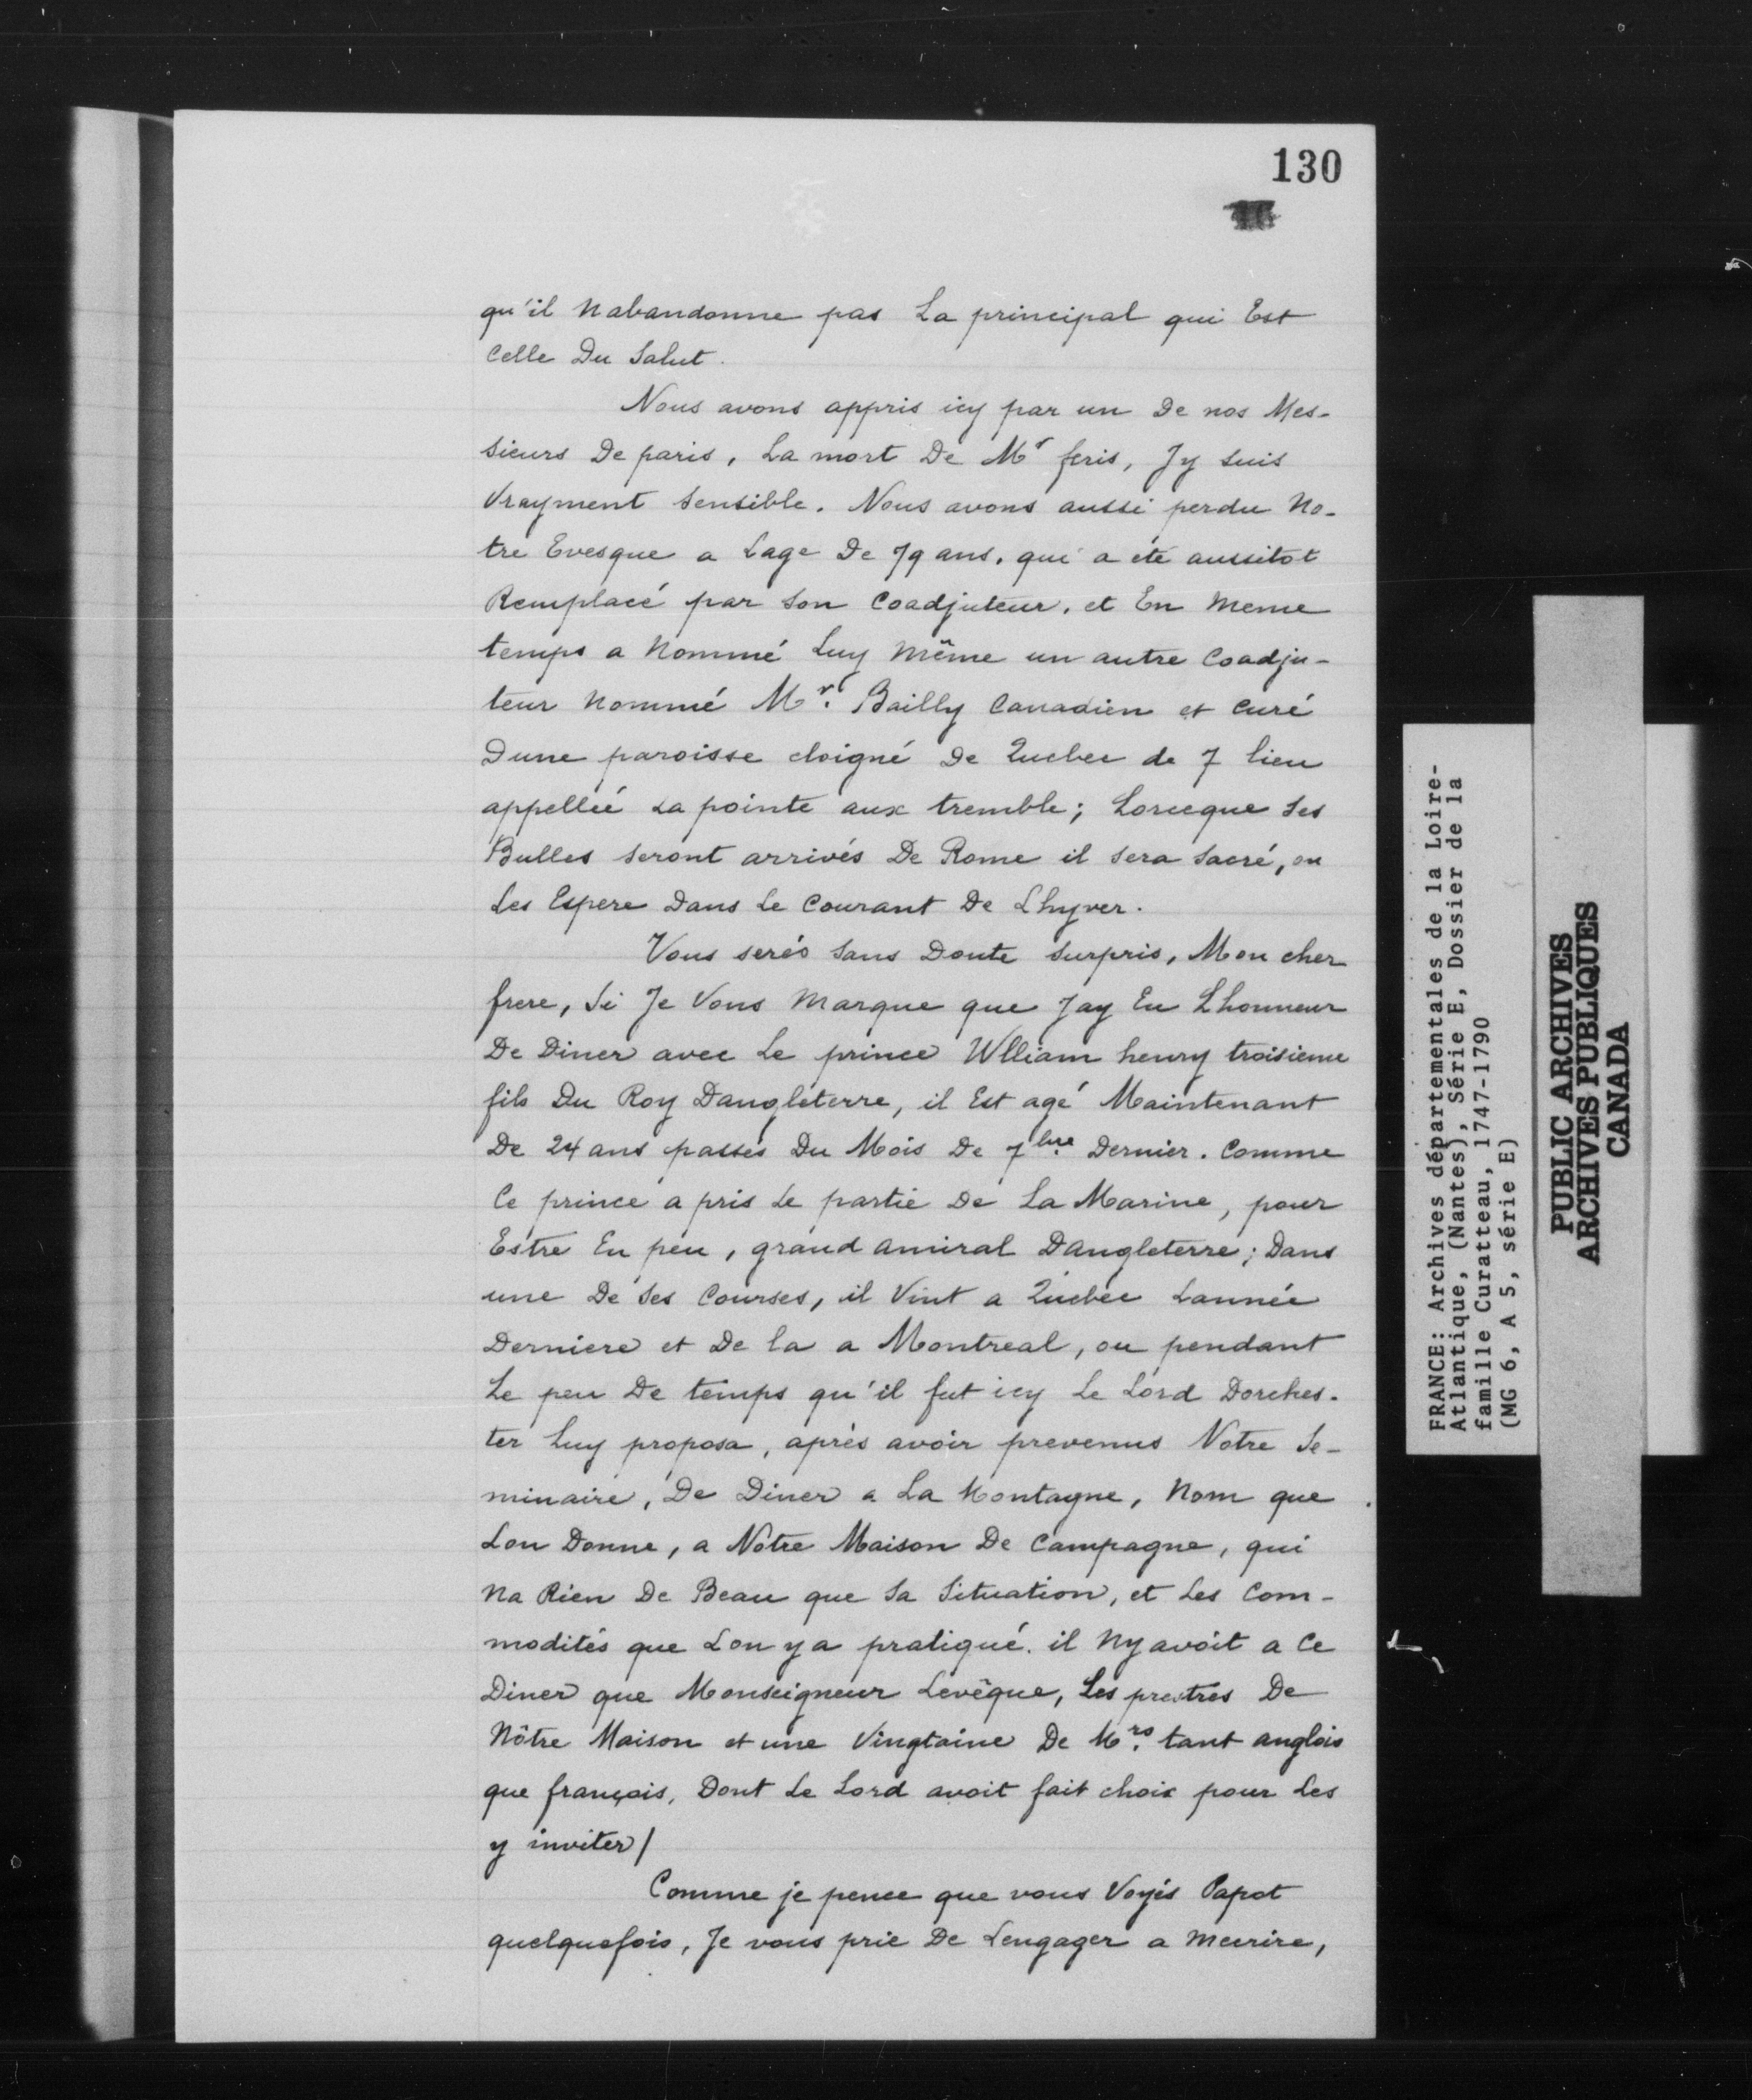 130
qu'il Nabandonne pas La principal qui Est
Celle Du Salut.
Nous avons appris icy par un De nos Mes-
sieurs De paris, La mort De Mr feris, Jy suis
Vrayment Sensible. Nous avons aussi perdu No-
tre Evesque a Lage De 79 ans, qui a eté aussitot
Remplacé par Son Coadjuteur, et En Meme
temps a Nommé Luy Même un autre Coadju-
teur Nommé Mr. Bailly Canadien et Curé
Dune paroisse eloigné De Quebec de 7 lieu
appelleé La pointe aux tremble; Lorceque Ses
Bulles Seront arrivés De Rome il Sera Sacré, on
Les Espere Dans Le Courant De Lhyver.
Vous serés Sans Doute Surpris, Mon cher
frere, Si Je Vous Marque que Jay Eu Lhonneur
De Diner avec Le prince Wlliam henry troisieme
fils Du Roy Dangleterre, il Est agé Maintenant
De 24 ans passés Du Mois De 7bre. Dernier. Comme
Ce prince a pris Le partie De La Marine, pour
Estre En peu, grand Amiral Dangleterre; Dans
une De Ses Courses, il Vint a Quebec Lannée
Derniere et De la a Montreal, ou pendant
Le peu De temps qu'il fut icy Le Lord Dorches-
ter Luy proposa, après avoir prevenus Notre Se-
minaire, De Diner a La Montagne, Nom que
Lon Donne, a Nôtre Maison De Campagne, qui
Na Rien De Beau que Sa Situation, et Les Com-
modités que Lon y a pratiqué. il Ny avoit a Ce
Diner que Monseigneur Levêque, Les prestres De
Nôtre Maison et une Vingtaine De Mrs. tant anglois
que françois, Dont Le Lord avoit fait choix pour Les
y inviter/
Comme je pence que vous Voyés Papot
quelquefois, Je vous prie De Lengager a Mecrire,
FRANCE: Archives départementales de la Loire-
Atlantique, (Nantes), Série E, Dossier de la
famille Curatteau, 1747-1790
(MG 6, A 5, série E)
PUBLIC ARCHIVES
ARCHIVES PUBLIQUES
CANADA